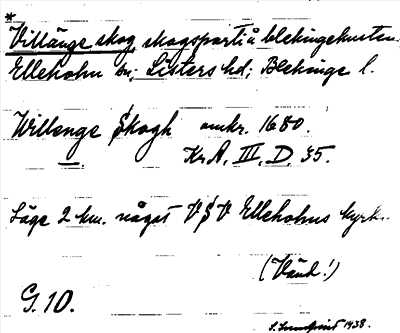 *
Villänge skog, skogsparti å blekingekusten.
Ellehohn sn; Listers hd; Blekinge l.
Willenge Skogh omkr. 1680.
Kr.A, III, D. 35.
Läge 2 km. något VSV Ellehohns kyrk.
(Vänd!)
G. 10.
1938.